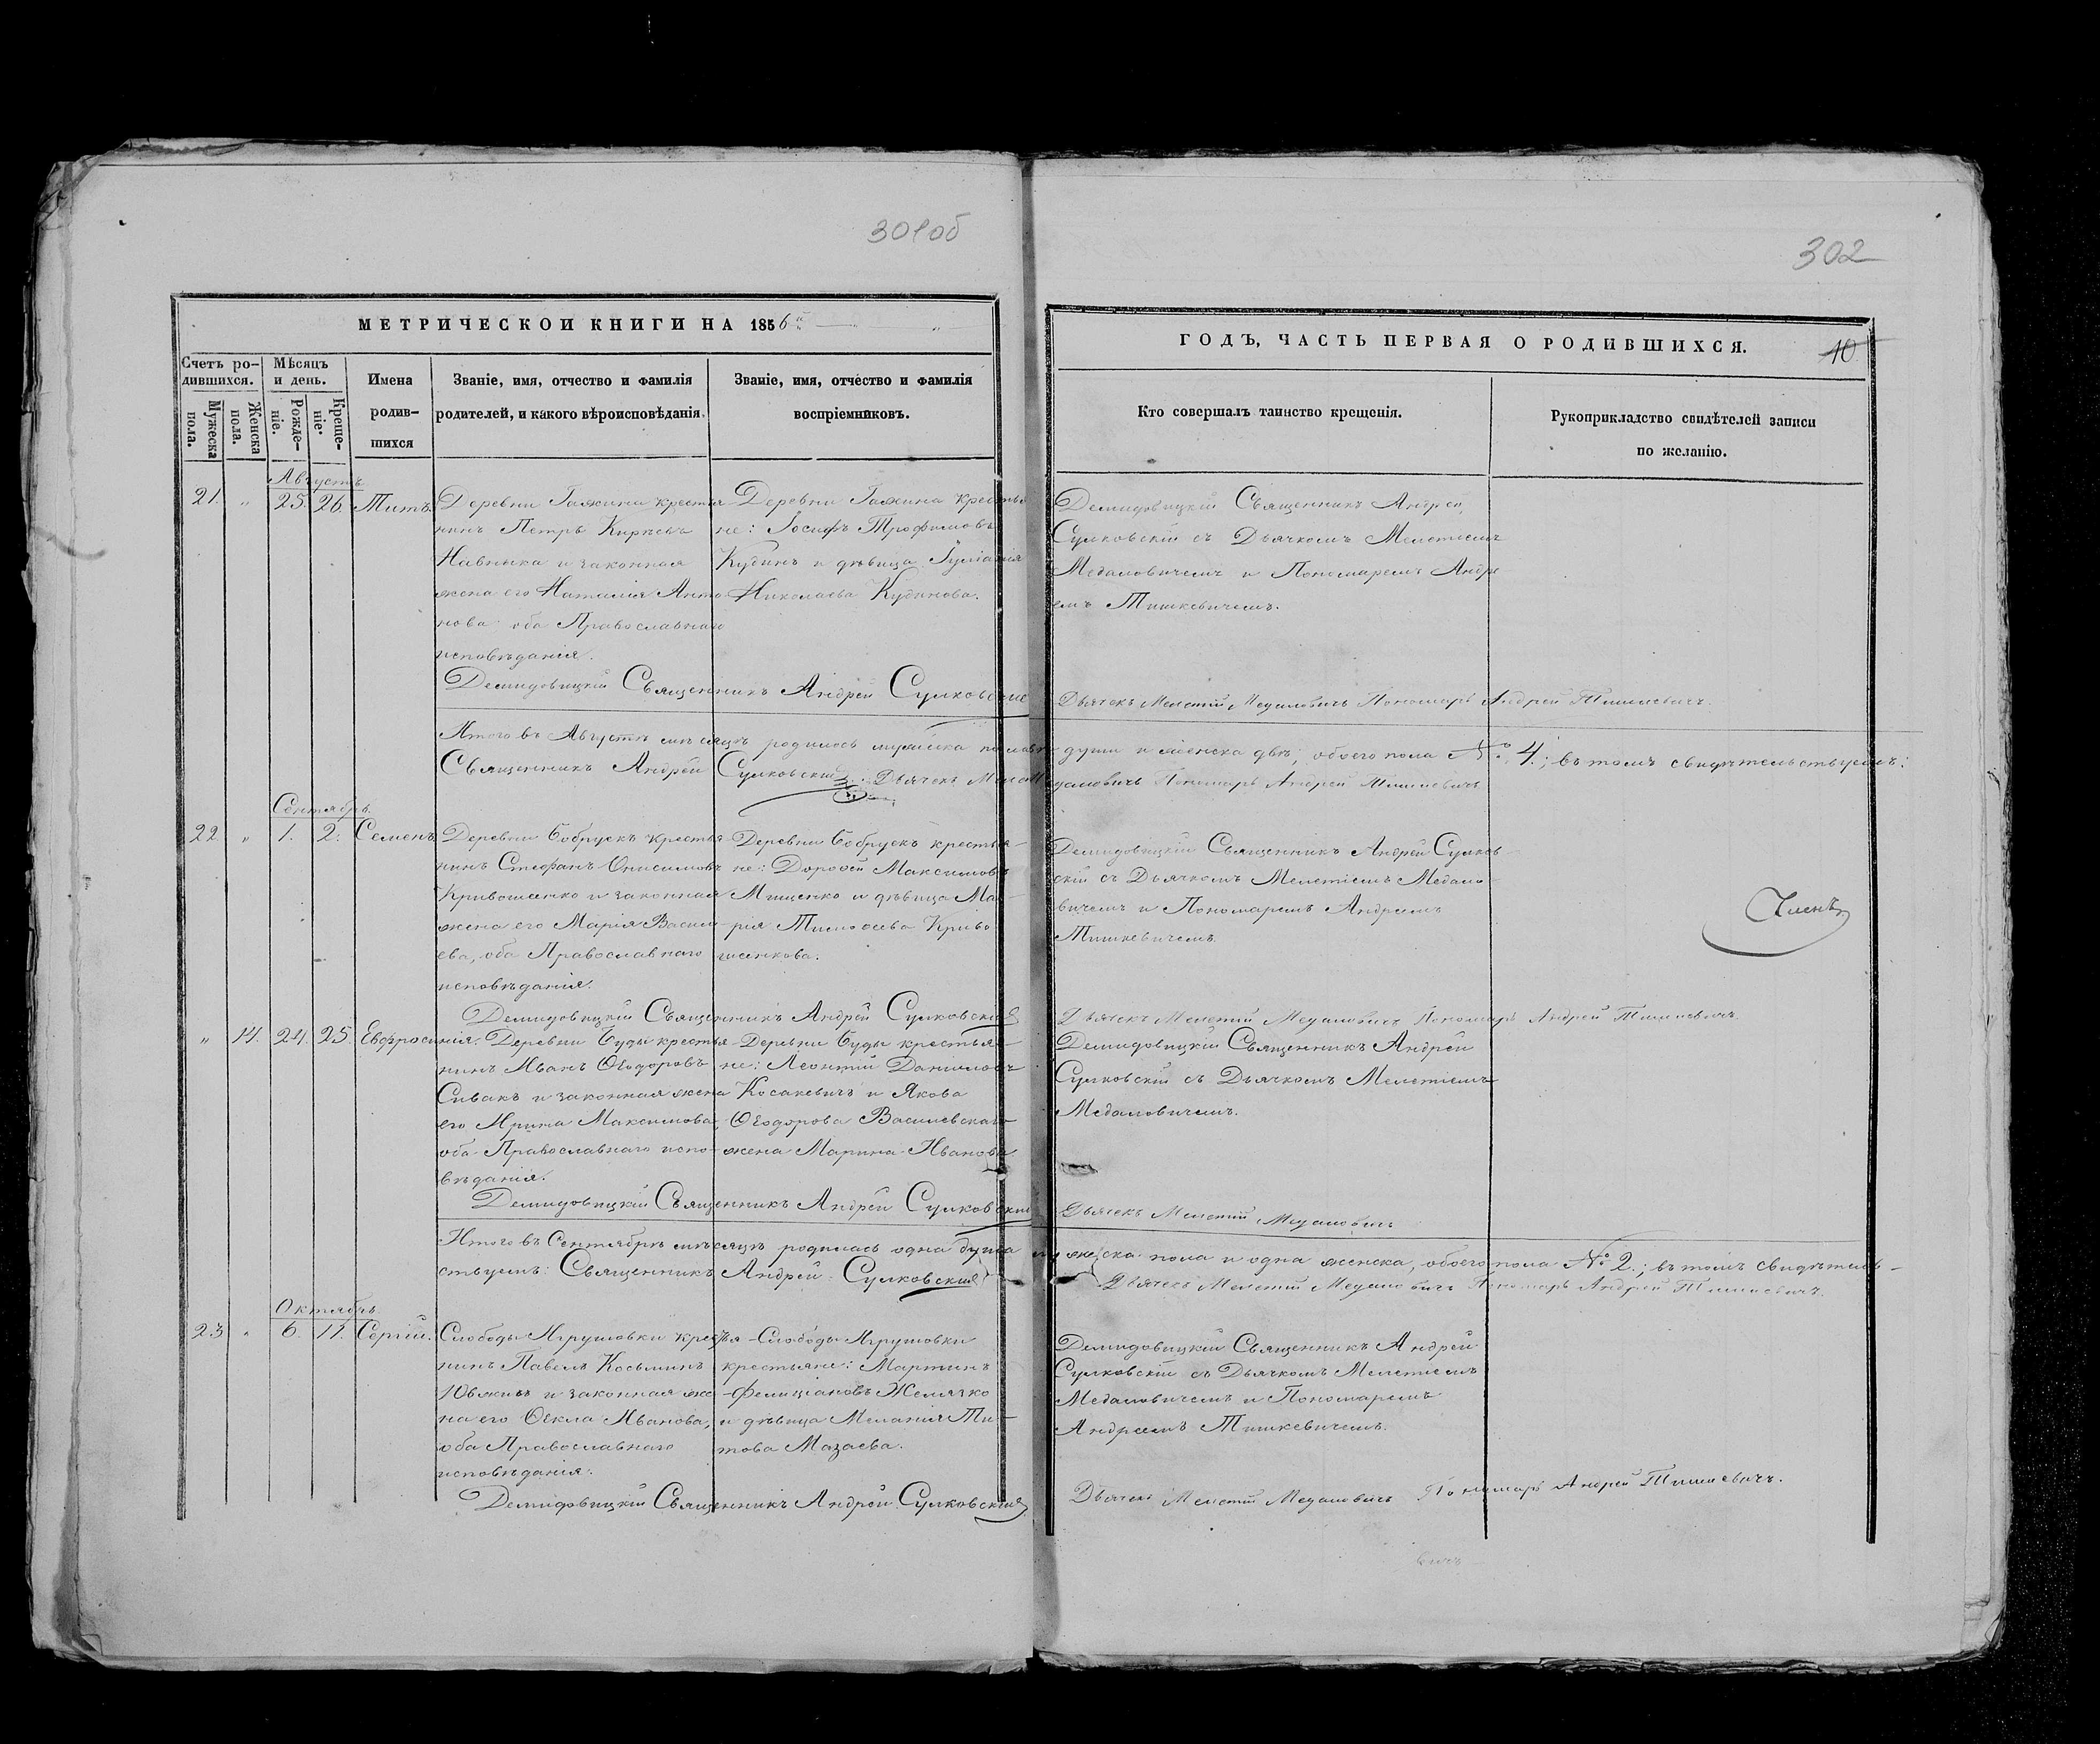 301об
МЕТРИЧЕСКОЙ КНИГИ НА 1856й
Счетъ ро-
дившихся.
Мужеска
пола.
Женска
пола.
Мѣсяцъ
и день.
Рожде-
ніе.
Креще-
ніе.
Имена
родив-
шихся
Званіе, имя, отчество и фамилія
родителей, и какого вѣроисповѣданія.
Званіе, имя, отчество и фамилія
воспріемниковъ.
Августъ
21. " 25. 26. Титъ.
Деревни Гажина крестья
нинъ Петръ Кирѣевъ
и законная
жена его Наталія Анто-
нова оба Православнаго
исповѣданія.
Деревни Гажина крестья
не: Іосифъ Трофимовъ
Кудинъ и дѣвица
Николаева Кудинова.
Демидовицкій Священникъ Андрей Сулковскій
Итого въ Августѣ мѣсяцѣ родилось мужеска пола двѣ души и женска двѣ; обоего пола №. 4.; въ томъ свидѣтельствуемъ:
Священникъ Андрей Сулковскій. Дьячекъ Пономарь Андрей Тишкевичъ
Сентябрь.
22 " 1. 2. Семенъ
Деревни Бобрускъ крестья-
нинъ Стефанъ Онисимовъ
Кривошенко и законная
жена его Марія Васил-
ева, оба Православнаго
исповѣданія.
Деревни Бобрускъ крестья-
не: Дорофей Максимовъ
Мищенко и дѣвица Ма-
рія Тимофеева Криво
шенкова.
Демидовицкій Священникъ Андрей Сулковскій
" 14. 24. 25. Евфросинія.
Деревни Буды крестья-
нинъ Иванъ Ѳеодоровъ
Сивакъ и законная жена
его Ирина Максимова,
оба Православнаго испо-
вѣданія.
Деревни Буды крестья-
не: Леонтій Даниловъ
Косакевичъ и Якова
Ѳеодорова Василевскаго
жена Марина Иванова
Демидовицкій Священникъ Андрей Сулковскій
Итого въ Сентябрѣ мѣсяцѣ родилась одна душа мужеска пола и одна женска, обоего пола №. 2.; въ томъ свидѣтель-
ствуемъ: Священникъ Андрей Сулковскій Дьячекъ Мелетій Медаловичъ Пономарь Андрей Тишкевичъ.
Октябрь
23 " 6. 11. Сергій.
Слободы Ягрушовки крестья
нинъ Павелъ Косьминъ
и законная же
на его Ѳекла Иванова,
оба Православнаго
исповѣданія.
Слободы Ягрушовки
крестьяне: Мартинъ
Фелиціановъ Желячко
и дѣвица Меланія Ти-
това Мазаева.
Демидовицкій Священникъ Андрей Сулковскій
302
ГОДЪ, ЧАСТЬ ПЕРВАЯ О РОДИВШИХСЯ.
10
Кто совершалъ таинство крещенія.
Рукоприкладство свидѣтелей записи
по желанію.
Демидовицкій Священникъ Андрей
Сулковскій съ Дьячкомъ Мелетіемъ
Медаловичемъ и Пономаремъ Андре
емъ Тишкевичемъ.
Дьячекъ Мелетій Медаловичъ Пономарь Андрей Тишкевичъ.
Демидовицкій Священникъ Андрей Сулков-
скій съ Дьячкомъ Мелетіемъ Медало-
вичемъ и Пономаремъ Андреемъ
Тишкевичемъ.
Членъ
Дьячекъ Мелетій Медаловичъ Пономарь Андрей Тишкевичъ.
Демидовицкій Священникъ Андрей
Сулковскій съ Дьячкомъ Мелетіемъ
Медаловичемъ.
Дьячекъ Мелетій Медаловичъ
Демидовицкій Священникъ Андрей
Сулковскій съ Дьячкомъ Мелетіемъ
Медаловичемъ и Пономаремъ
Андреемъ Тишкевичемъ.
Дьячекъ Мелетій Медаловичъ Пономарь Андрей Тишкевичъ.